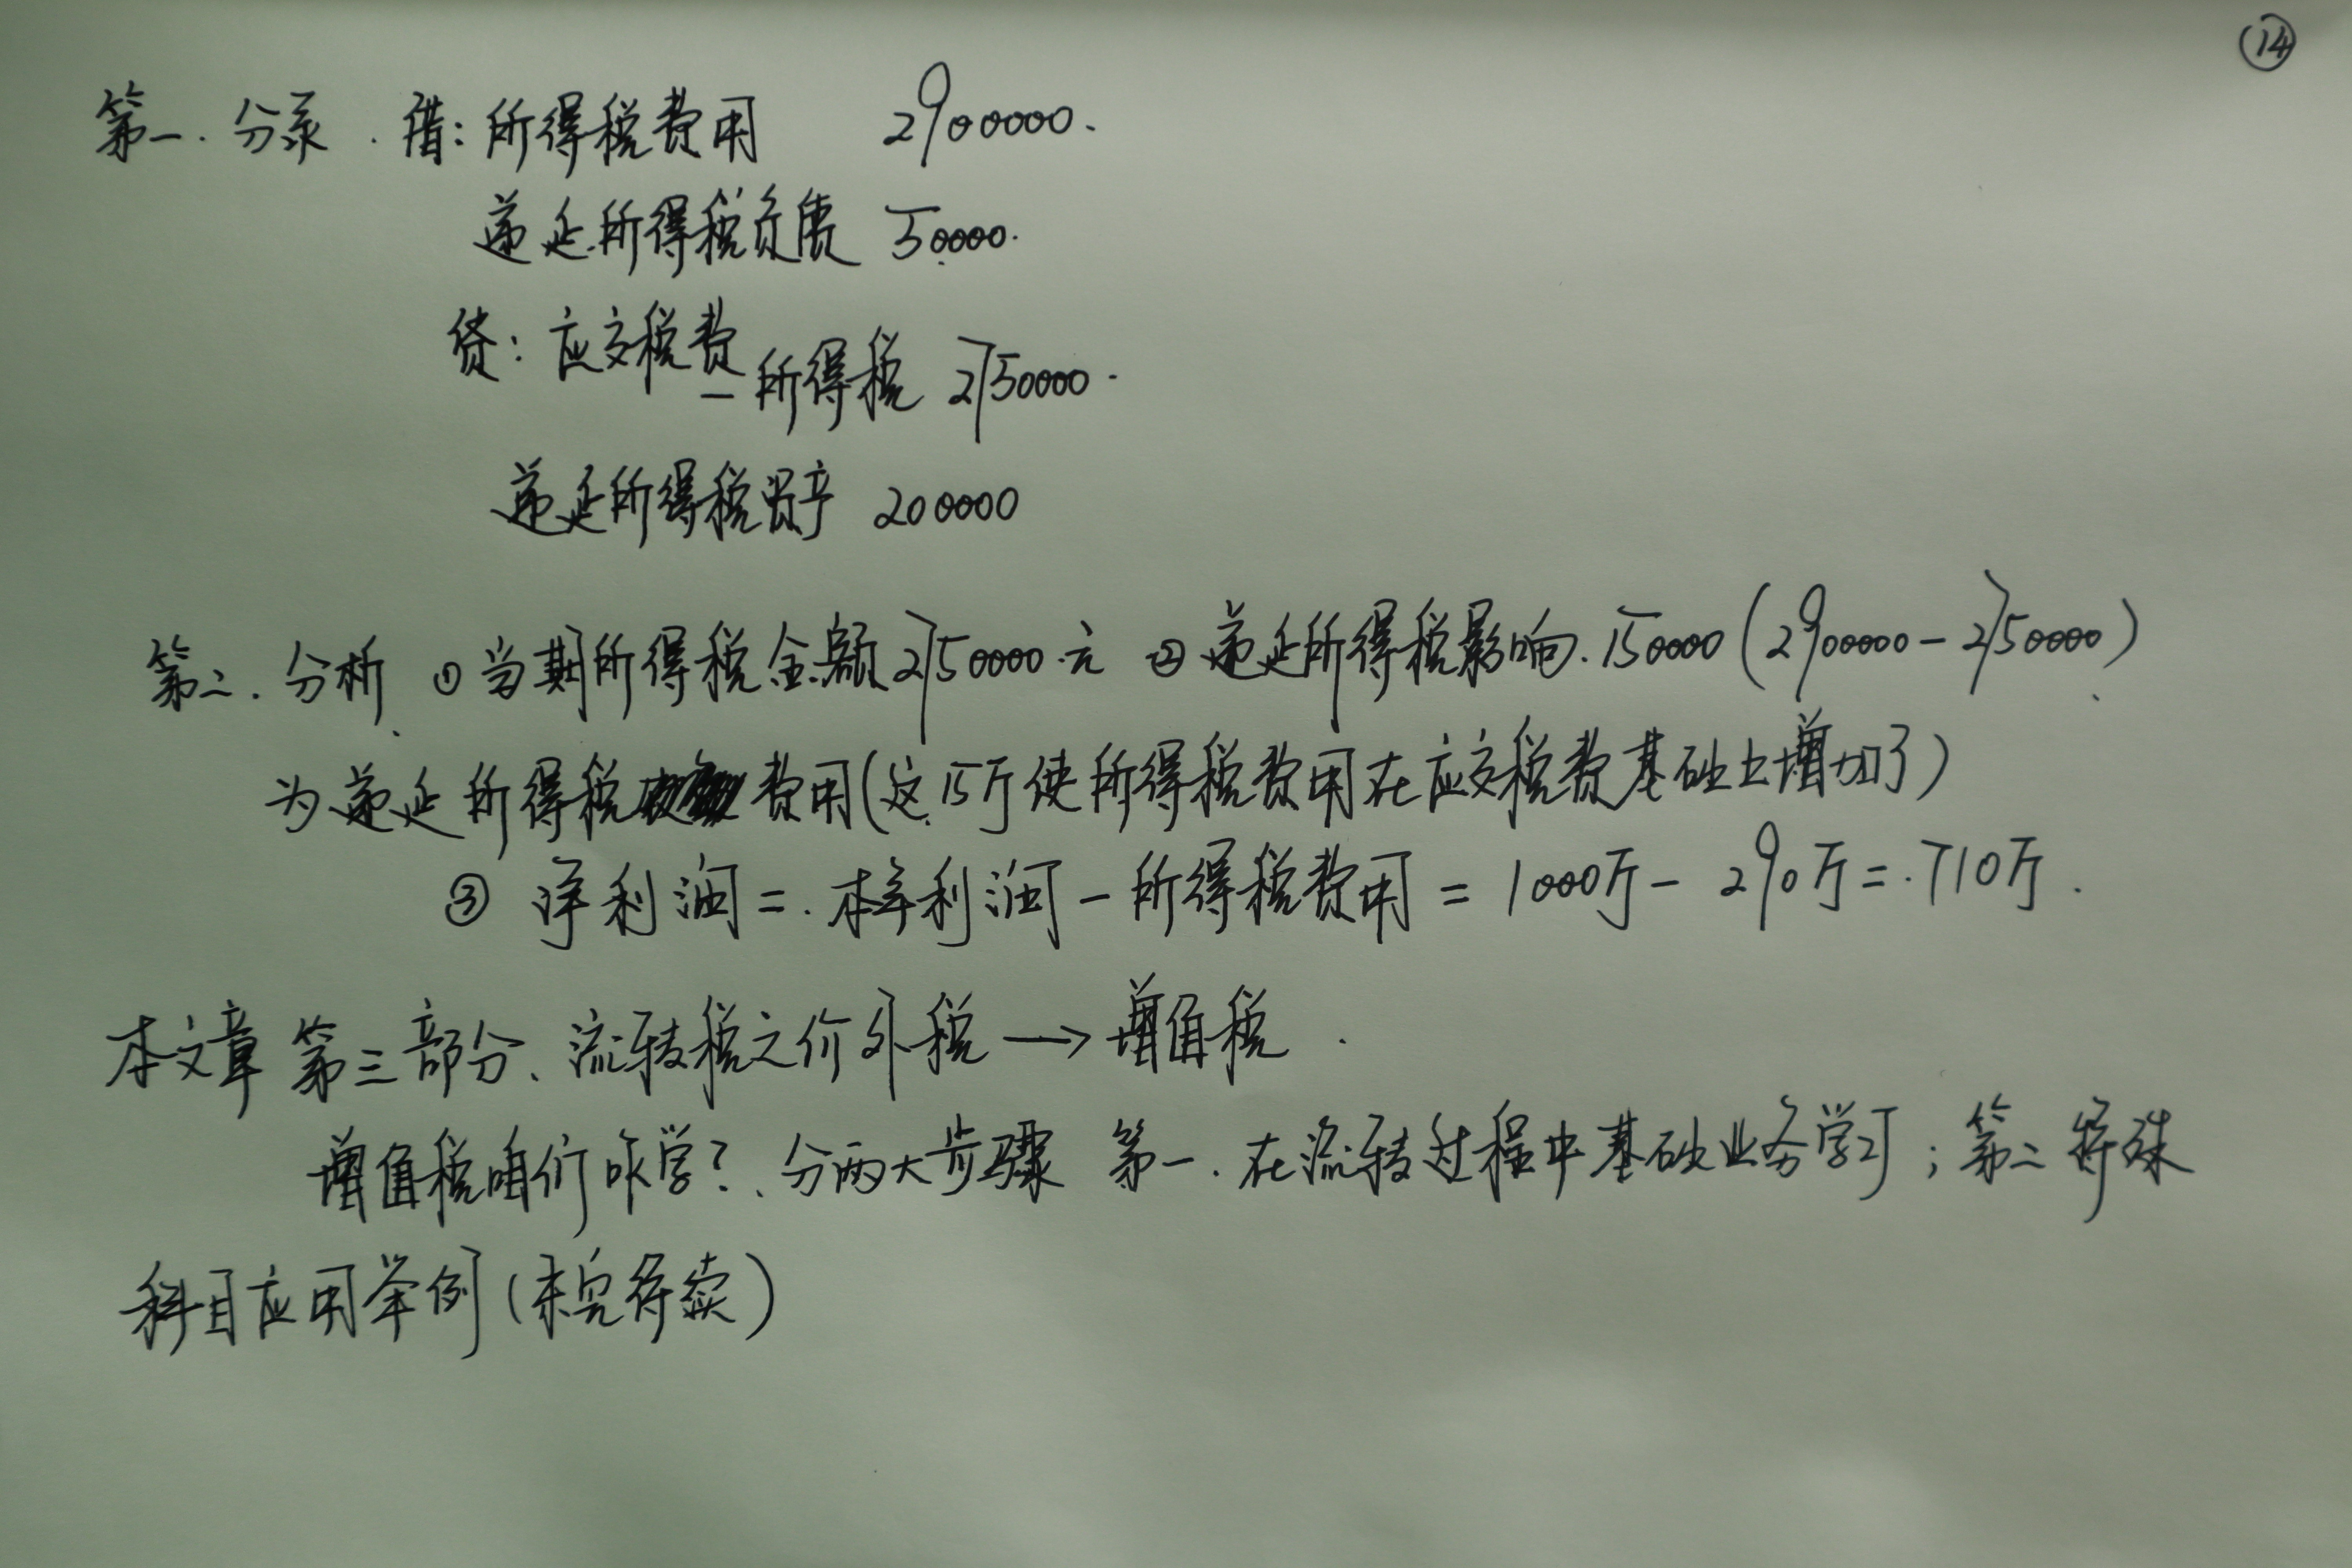 ⑭
第一.分录.借:所得税费用 2900000.
递延所得税负债 50000.
贷:应交税费
—所得税 2750000.
递延所得税资产 200000
第二.分析 ①当期所得税金额2750000元 ②递延所得税影响.150000(2900000-2750000)
为递延所得税费用(这15万使所得税费用在应交税费基础上增加了)
③ 净利润=.本年利润-所得税费用=1000万-290万=.710万.
本文章第三部分、流转税之价外税→增值税.
增值税咱们咋学?.分两大步骤 第一.在流转过程中基础业务学习;第二特殊
科目应用举例(未完待续)